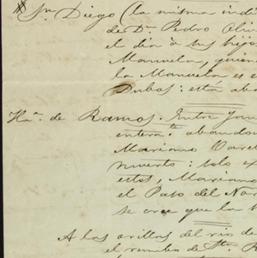 Sn. Diego (la misma indi
de Dn. Pedro Oliv
el dia á sus hijo
Manuela, quien
la Manuela es e
Dubos: está aba
Ha. de Ramos. Entre
entera. abandon
Mariano Vare
muerto: solo ex
estos, Marian
el Paso del Nor
se cree que la
A las orillas del rio de
el rumbo de Sta. R